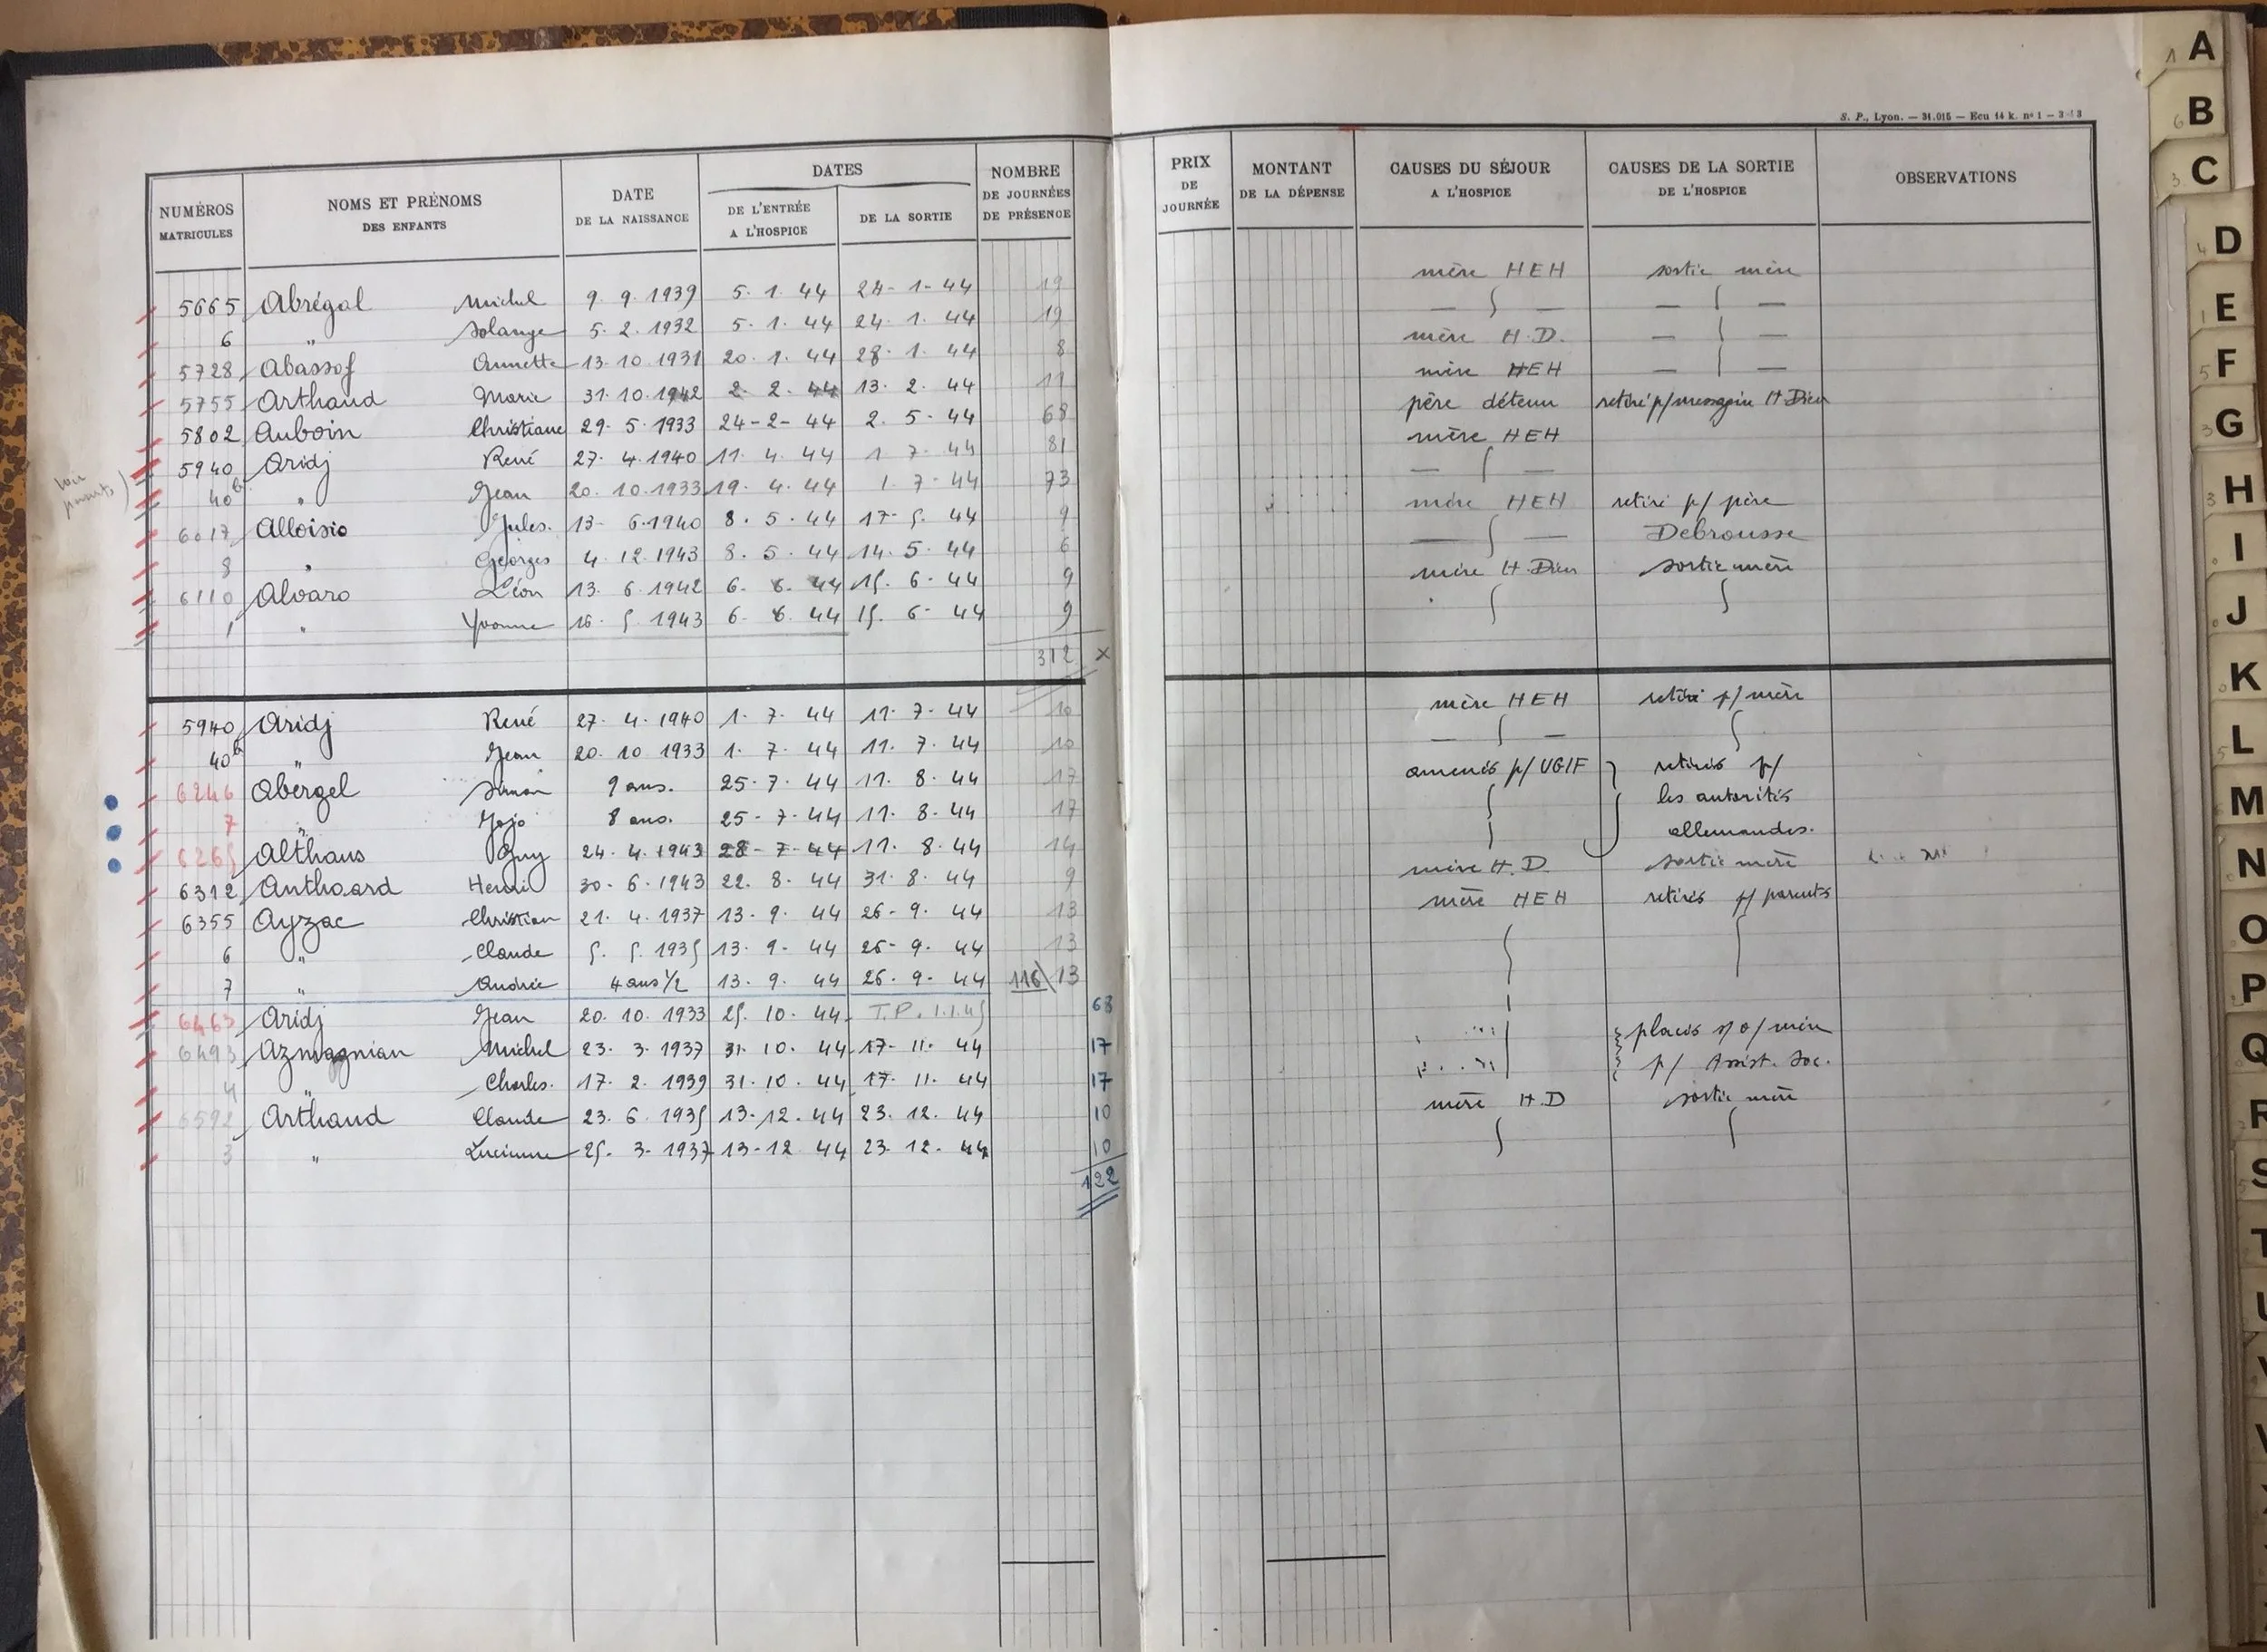 S. P., Lyon. — 31.015 — Ecu 14 k. nº 1 — 3
NUMÉROS MATRICULES
NOMS ET PRÉNOMS DES ENFANTS
DATE DE LA NAISSANCE
DATES
DE L'ENTRÉE A L'HOSPICE
DE LA SORTIE
NOMBRE DE JOURNÉES DE PRÉSENCE
PRIX DE JOURNÉE
MONTANT DE LA DÉPENSE
CAUSES DU SÉJOUR A L'HOSPICE
CAUSES DE LA SORTIE DE L'HOSPICE
OBSERVATIONS
5665 Abrégal Michel 9. 9. 1939 5. 1. 44 24-1-44 19 mère HEH sortie mère
6 " Solange 5. 2. 1932 5. 1. 44 24. 1. 44 19 — —
5728 Abassof Annette 13. 10. 1931 20. 1. 44 28. 1. 44 8 mère H.D. — —
5755 Arthaud Marie 31. 10. 1942 2. 2. 44 13. 2. 44 11 mère HEH — —
5802 Auboin Christiane 29. 5. 1933 24-2-44 2. 5. 44 68 père détenu retiré p/messagère H-Dieu
5940 Aridj René 27. 4. 1940 11. 4. 44 1 7. 44 81 mère HEH
40b " Jean 20. 10. 1933 19. 4. 44 1. 7. 44 73 — —
6017 Alloisio Jules. 13- 6.1940 8. 5. 44 17-5. 44 9 mère HEH retiré p/ père
8 " Georges 4. 12. 1943 8. 5. 44 14. 5. 44 6 — — Debrousse
6110 Alvaro Léon 13. 6. 1942 6. 6. 44 15. 6. 44 9 mère H.Dieu sortie mère
1 " Yvonne 16. 5. 1943 6. 6. 44 15. 6. 44 9
312 x
5940 Aridj René 27. 4. 1940 1. 7. 44 11. 7. 44 10 mère HEH retiré p/ mère
40b " Jean 20. 10 1933 1. 7. 44 11. 7. 44 10 — —
6246 Abergel Simon 9 ans. 25. 7. 44 11. 8. 44 17 amenés p/ UGIF retirés p/
7 " Jojo 8 ans. 25-7-44 11. 8. 44 17 les autorités
6265 Althaus Guy 24. 4. 1943 28-7-44 11. 8. 44 14 allemandes.
6312 Anthoard Henri 30-6-1943 22. 8. 44 31. 8. 44 9 mère H.D. sortie mère
6355 Ayzac Christian 21. 4. 1937 13-9. 44 26-9. 44 13 mère HEH retirés p/ parents
6 " Claude 5. 5. 1935 13. 9. 44 26-9. 44 13
7 " Andrée 4 ans 1/2 13. 9. 44 26. 9. 44 116 13
6463 Aridj Jean 20. 10. 1933 25. 10. 44 T.P. 1.1.45 68
6493 Azmagnian Michel 23. 3. 1937 31. 10. 44 17-11. 44 17 placés s/o/mère
4 " Charles. 17. 2. 1939 31. 10. 44 17. 11. 44 17 p/ Assist. Soc.
6592 Arthaud Claude 23. 6. 1935 13-12. 44 23. 12. 44 10 mère H.D sortie mère
3 " Lucienne 25. 3. 1937 13-12 44 23. 12. 44 10
122
A
B
C
D
E
F
G
H
I
J
K
L
M
N
O
P
Q
R
S
T
U